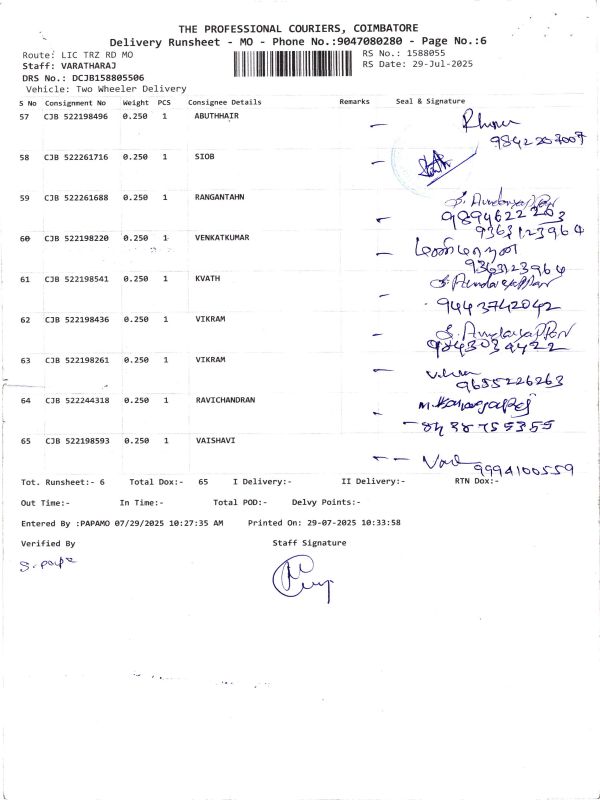 THE PROFESSIONAL COURIERS, COIMBATORE
Delivery Runsheet - MO - Phone No.:9047080280 - Page No.:6
Route: LIC TRZ RD MO
RS No.: 1588055
Staff: VARATHARAJ
RS Date: 29-Jul-2025
DRS No.: DCJB158805506
Vehicle: Two Wheeler Delivery
S No Consignment No Weight PCS Consignee Details Remarks Seal & Signature
57 CJB 522198496 0.250 1 ABUTHHAIR
9842207007
58 CJB 522261716 0.250 1 SIOB
59 CJB 522261688 0.250 1 RANGANTAHN
9894622263
9363123964
60 CJB 522198220 0.250 1 VENKATKUMAR
9363123964
61 CJB 522198541 0.250 1 KVATH
9443742042
62 CJB 522198436 0.250 1 VIKRAM
63 CJB 522198261 0.250 1 VIKRAM
9655226263
64 CJB 522244318 0.250 1 RAVICHANDRAN
65 CJB 522198593 0.250 1 VAISHAVI
9994100559
Tot. Runsheet:- 6 Total Dox:- 65 I Delivery:- II Delivery:- RTN Dox:-
Out Time:- In Time:- Total POD:- Delvy Points:-
Entered By :PAPAMO 07/29/2025 10:27:35 AM Printed On: 29-07-2025 10:33:58
Verified By Staff Signature